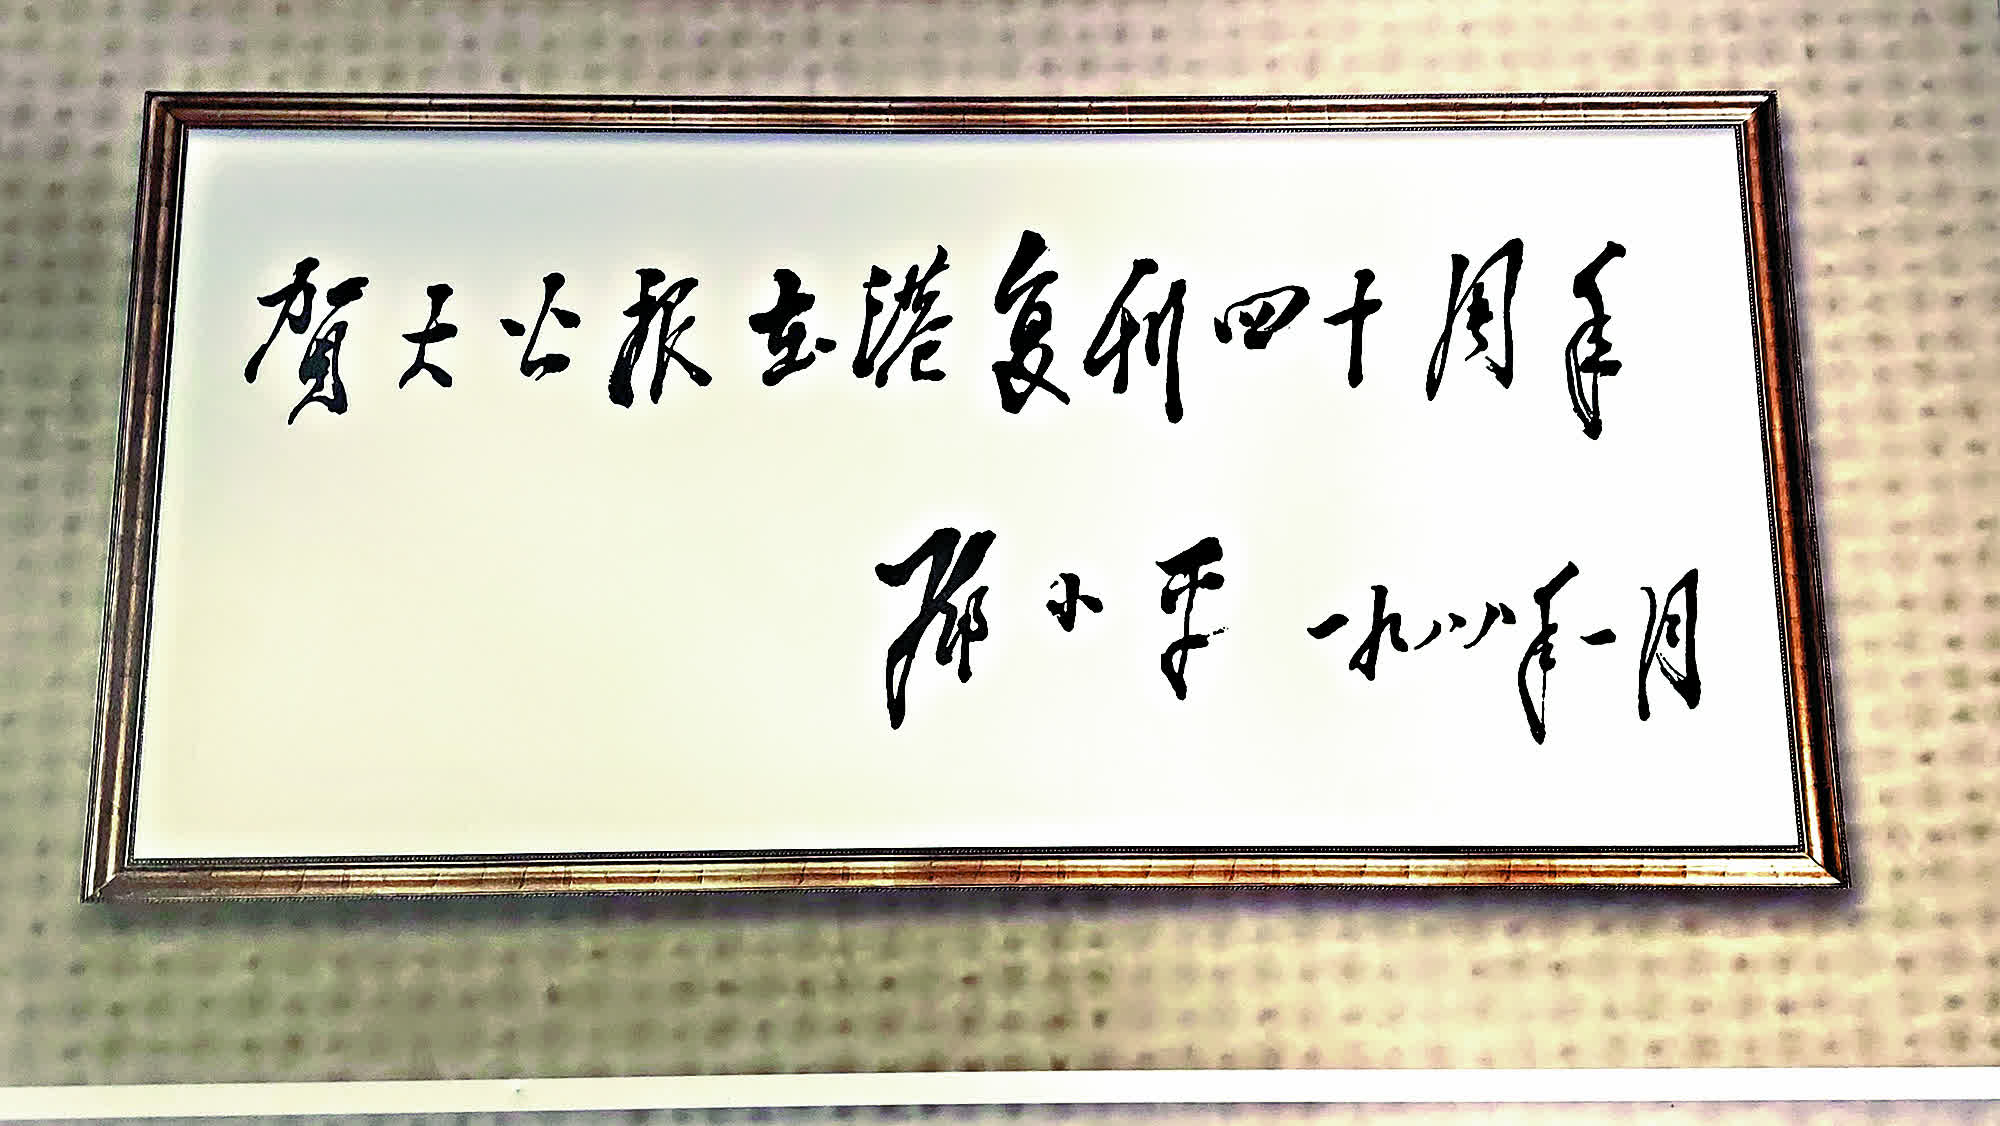 賀大公报在港复刊四十周年
邓小平 一九八八年一月